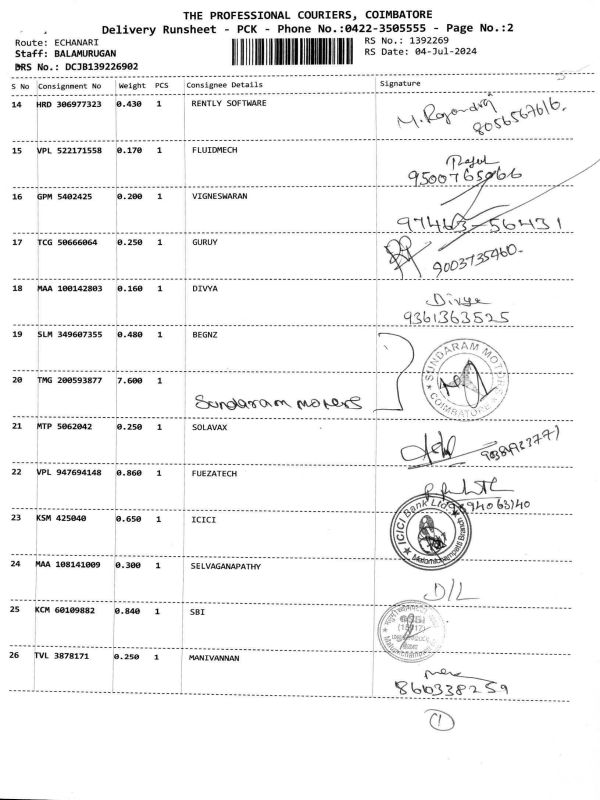 THE PROFESSIONAL COURIERS, COIMBATORE
Delivery Runsheet - PCK - Phone No.:0422-3505555 - Page No.:2
Route: ECHANARI RS No.: 1392269
Staff: BALAMURUGAN RS Date: 04-Jul-2024
DRS No.: DCJB139226902
S No Consignment No Weight PCS Consignee Details Signature
14 HRD 306977323 0.430 1 RENTLY SOFTWARE
8056567616.
15 VPL 522171558 0.170 1 FLUIDMECH
9500765066
16 GPM 5402425 0.200 1 VIGNESWARAN
97463-56431
17 TCG 50666064 0.250 1 GURUY
9003735460.
18 MAA 100142803 0.160 1 DIVYA
Divya
9361363525
19 SLM 349607355 0.480 1 BEGNZ
SUNDARAM MOTORS
COIMBATORE
20 TMG 200593877 7.600 1
Sundaram motors
21 MTP 5062042 0.250 1 SOLAVAX
22 VPL 947694148 0.860 1 FUEZATECH
23 KSM 425040 0.650 1 ICICI
ICICI Bank Ltd
Branch
24 MAA 108141009 0.300 1 SELVAGANAPATHY
D/L
25 KCM 60109882 0.840 1 SBI
26 TVL 3878171 0.250 1 MANIVANNAN
8660338259
1